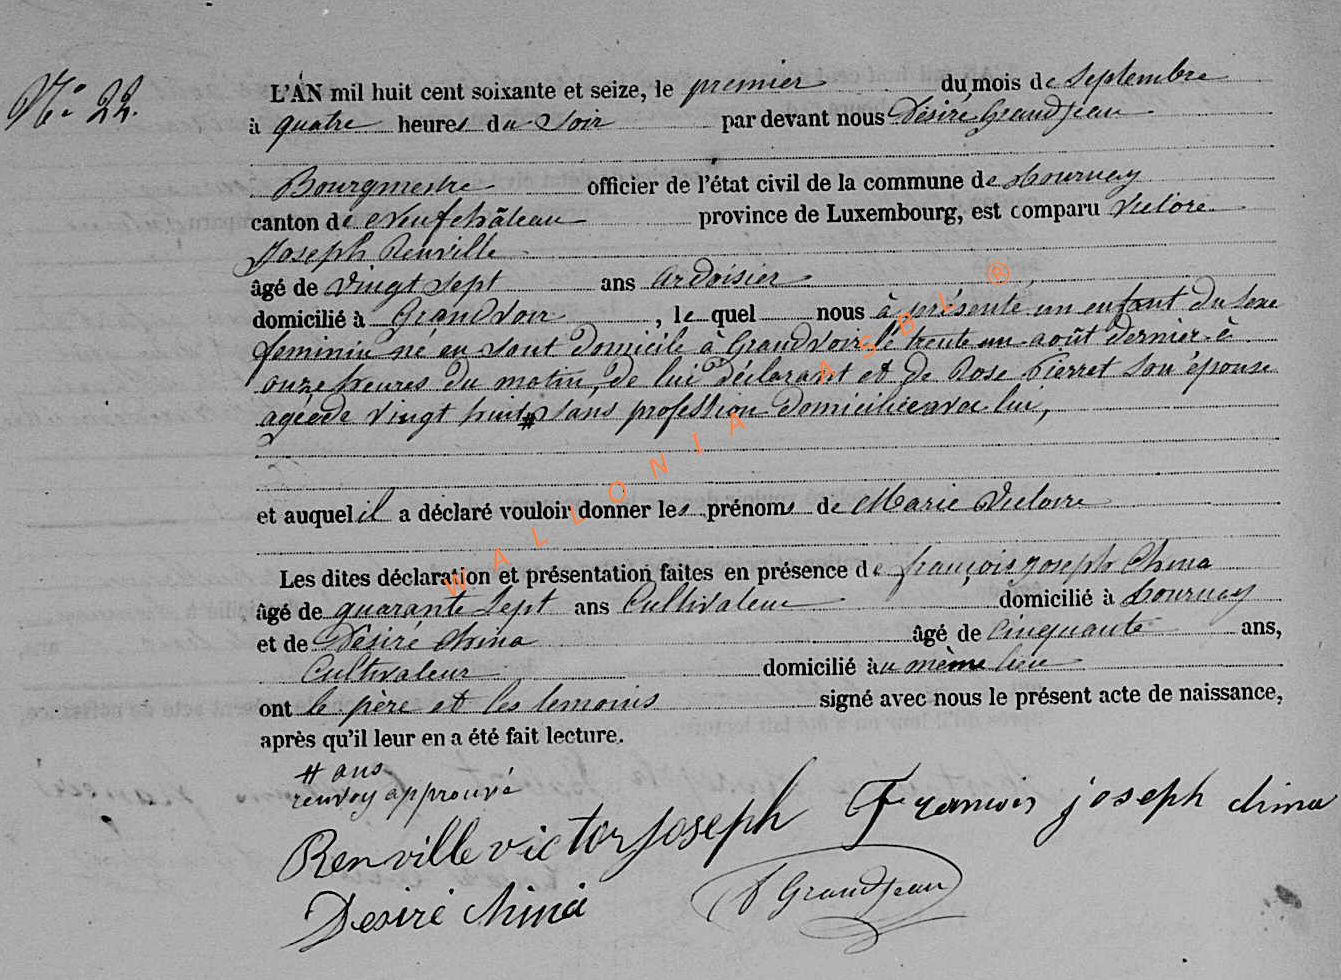 N° 22.
L'AN mil huit cent soixante et seize, le premier du mois de Septembre
à quatre heures du Soir par devant nous Désiré Grandjean
Bourgmestre officier de l'état civil de la commune de Tournay
canton de Neufchâteau province de Luxembourg, est comparu Victor
Joseph Renville
âgé de vingt sept ans ardoisier
domicilié à Grandvoir, le quel nous à présenté un enfant du sexe
feminin né en sont domicile à Grandvoir le trente un août dernier à
onze heures du matin, de lui déclarant et de Rose Pierret son épouse
agée de vingt huit # sans profession domiciliée avec lui,
et auquel il a déclaré vouloir donner les prénoms de Marie Victoire
Les dites déclaration et présentation faites en présence de françois joseph China
âgé de quarante Sept ans Cultivateur domicilié à Tournay
et de Désiré China âgé de Cinquante ans,
Cultivateur domicilié au même lieu
ont le père et les temoins signé avec nous le présent acte de naissance,
après qu'il leur en a été fait lecture.
# ans
renvoy approuvé
Renville victor joseph François joseph china
Desiré China D Grandjean
WALLONIA ASBL ®